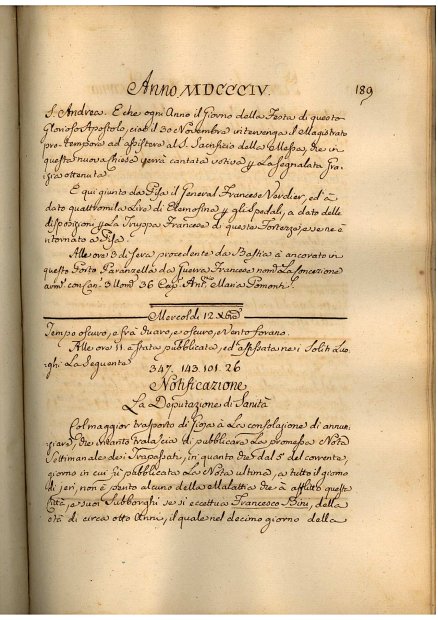 Anno MDCCCIV.
189
S. Andrea. E che ogni Anno il Giorno della Festa di questo
Glorioso Apostolo, cioè il 30 Novembre intervenga il Magistrato
pro-tempore ad assistere al S. Sacrifizio della Messa, che in
questa nuova Chiesa verrà cantata votiva p La segnalata gra-
zia ottenuta.
E qui giunto da Pisa il General Francese Verdier, ed à
dato quattromila Lire di Elemosina p gli Spedali, a dato delle
disposizioni p La Truppa Francese di questa Fortezza, e se ne è
ritornato a Pisa.
Alle ore 3 di sera procedente da Bastia à ancorato in
questo Porto Paranzella da Guerra Francese nom. La Concezione
arm. con Can. 3 Uom. 36 Cap. Ant. Maria Pomonti.
Mercoldì 12 Xbre
Tempo oscuro, e frà Chiaro, e oscuro, e Vento forano.
Alle ore 11. è stata pubblicata, ed affissata ne i Soliti Luo-
ghi La Seguente
347. 143. 101. 26
Notificazione
La Deputazione di Sanità
Col maggior trasporto di Gioja à La consolazione di annun-
ziare, che intanto tralascia di pubblicare La promessa Nota
Settimanale de i Trapassati, in quanto che dal 5 del corrente,
giorno in cui fù pubblicata La Nota ultima, a tutto il giorno
di jeri, non è perito alcuno della Malattia che à afflitto questa
Città, e suoi Subborghi se si eccettua Francesco Bini, della
età di circa otto Anni, il quale nel decimo giorno della